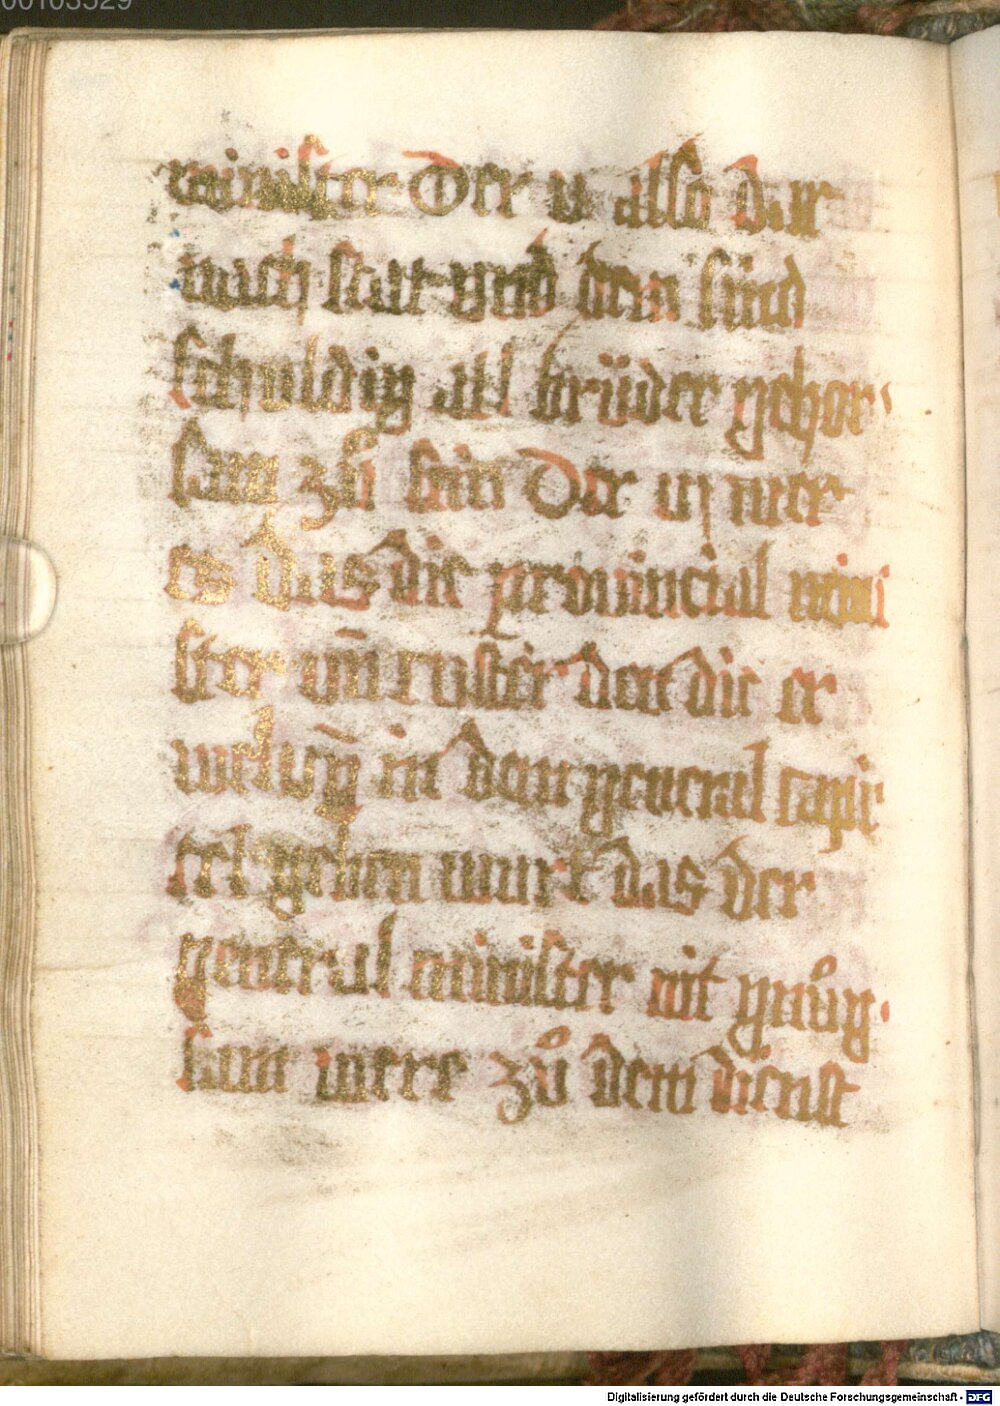 00103529
minister Der ii also dar
nach stat vnd dem sind
schuldig all brüder gehor
sam zů sin Der iij wer
es das die prouincial mini
ster vn̄ custer den die er
welūg in dem general capi
tel geben wurt das der
general minister nit gnůg
sam were zů dem dienst
Digitalisierung gefördert durch die Deutsche Forschungsgemeinschaft - DFG